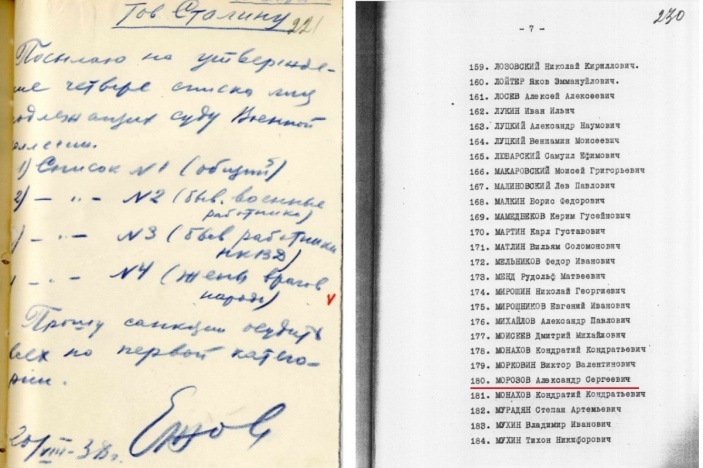 Тов Сталину
221
Посылаю на утвержде-
ние четыре списка лиц
подлежащих суду Военной
коллегии.
1) Список №1 (общий)
2) – „ – №2 (быв. военные
работники)
) – „ – №3 (быв работники
НКВД)
) – „ – №4 (жены врагов
народа)
Прошу санкции осудить
всех по первой катего-
рии.
Ежов
20/VIII-38г.
230
- 7 -
159. ЛОЗОВСКИЙ Николай Кириллович.
160. ЛОЙТЕР Яков Эммануйлович.
161. ЛОСЕВ Алексей Алексеевич
162. ЛУКИН Иван Ильич
163. ЛУЦКИЙ Александр Наумович
164. ЛУЦКИЙ Вениамин Моисеевич
165. ЛЮБАРСКИЙ Самуил Ефимович
166. МАКАРОВСКИЙ Моисей Григорьевич
167. МАЛИНОВСКИЙ Лев Павлович
168. МАЛКИН Борис Федорович
169. МАМЕДБЕКОВ Керим Гусейнович
170. МАРТИН Карл Густавович
171. МАТЛИН Вильям Соломонович
172. МЕЛЬНИКОВ Федор Иванович
173. МЕНД Рудольф Матвеевич
174. МИРОШИН Николай Георгиевич
175. МИРОШНИКОВ Евгений Иванович
176. МИХАЙЛОВ Александр Павлович
177. МОИСЕЕВ Дмитрий Михайлович
178. МОНАХОВ Кондратий Кондратьевич
179. МОРКОВИН Виктор Валентинович
180. МОРОЗОВ Александр Сергеевич
181. МОНАХОВ Кондратий Кондратьевич
182. МУРАДЯН Степан Артемьевич
183. МУХИН Владимир Иванович
184. МУХИН Тихон Никифорович